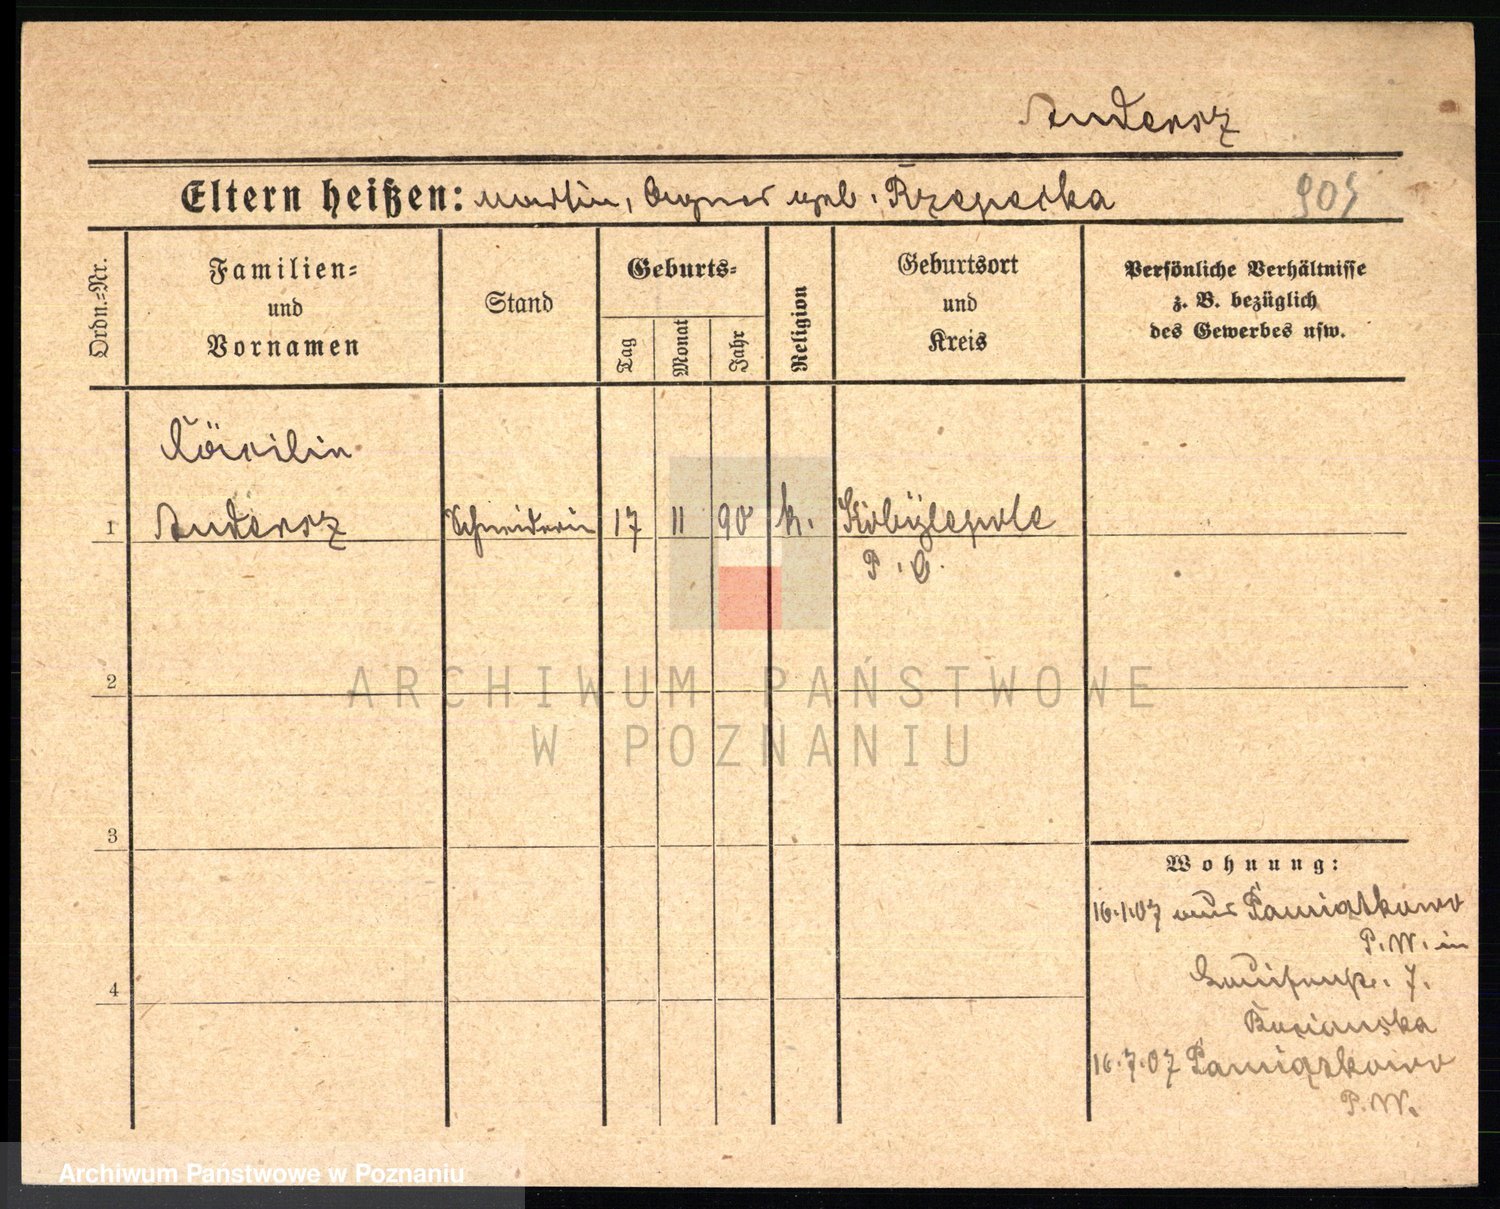 Andersz
Eltern heißen: Martin, Agnes geb. Rzepecka
Ordn.-Nr.
Familien-
und
Vornamen
Stand
Geburts-
Tag
Monat
Jahr
Religion
Geburtsort
und
Kreis
Persönliche Verhältnisse
z. B. bezüglich
des Gewerbes usw.
Cäcilie
1 Andersz Schneiderin 17 11 90 k. Kobylepole
P. O.
2
ARCHIWUM PAŃSTWOWE
W POZNANIU
3
Wohnung:
16.1.07 aus Pamiątkowo
P. W. in
7.
16.7.07 Pamiątkowo
P. W.
4
Archiwum Państwowe w Poznaniu